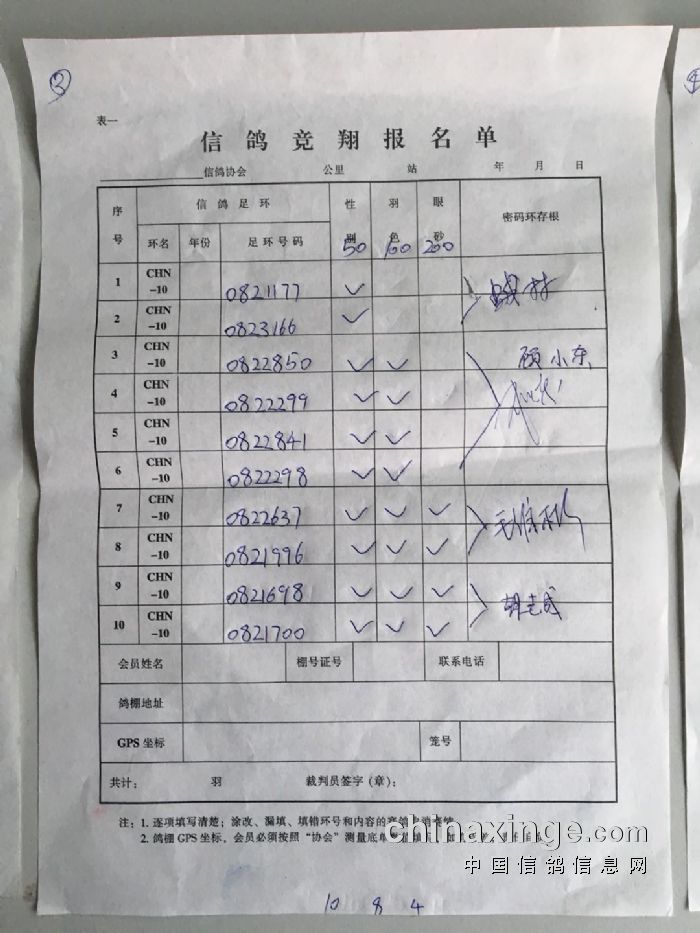 ③
表一
信鸽竞翔报名单
信鸽协会 公里 站 年 月 日
序号 信鸽足环 性别 羽色 眼砂 密码环存根
环名 年份 足环号码 50 100 200
1 CHN-10 0821177 ✓
2 CHN-10 0823166 ✓
3 CHN-10 0822850 ✓ ✓ 顾小东
4 CHN-10 0822299 ✓ ✓
5 CHN-10 0822841 ✓ ✓
6 CHN-10 0822298 ✓ ✓
7 CHN-10 0822637 ✓ ✓ ✓
8 CHN-10 0821996 ✓ ✓ ✓
9 CHN-10 0821698 ✓ ✓ ✓
10 CHN-10 0821700 ✓ ✓ ✓
会员姓名 棚号证号 联系电话
鸽棚地址
GPS坐标 笼号
共计: 羽 裁判员签字(章):
注:1. 逐项填写清楚;涂改、漏填、填错环号和内容的赛鸽
2. 鸽棚GPS坐标,会员必须按照“协会”测量底单
chinaxinge.com
中国信鸽信息网
10 8 4